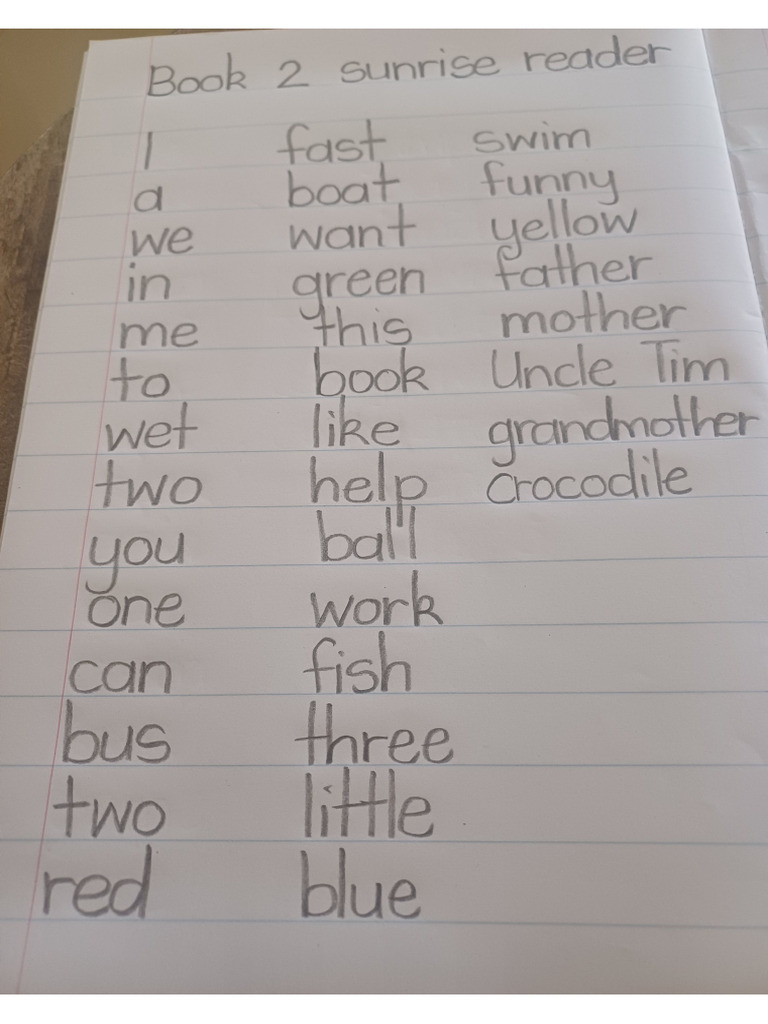 Book 2 sunrise reader
I fast swim
a boat funny
we want yellow
in green father
me this mother
to book Uncle Tim
wet like grandmother
two help crocodile
you ball
one work
can fish
bus three
two little
red blue